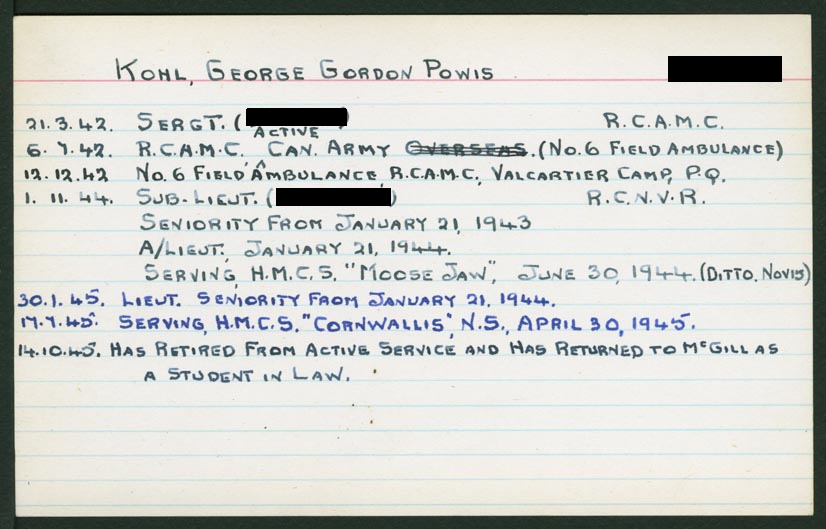 KOHL, GEORGE GORDON POWIS
21.3.42. SERGT. ( ) R.C.A.M.C.
ACTIVE
6.7.42. R.C.A.M.C., CAN. ARMY OVERSEAS. (NO. 6 FIELD AMBULANCE)
12.12.42 NO. 6 FIELD AMBULANCE, R.C.A.M.C., VALCARTIER CAMP, P.Q.
1. 11. 44. SUB-LIEUT. ( ) R.C.N.V.R.
SENIORITY FROM JANUARY 21, 1943
A/LIEUT., JANUARY 21, 1944.
SERVING, H.M.C.S. "MOOSE JAW", JUNE 30, 1944. (DITTO, NOV15)
30.1.45. LIEUT. SENIORITY FROM JANUARY 21, 1944.
17.7.45. SERVING, H.M.C.S. "CORNWALLIS", N.S., APRIL 30, 1945.
14.10.45. HAS RETIRED FROM ACTIVE SERVICE AND HAS RETURNED TO McGILL AS
A STUDENT IN LAW.